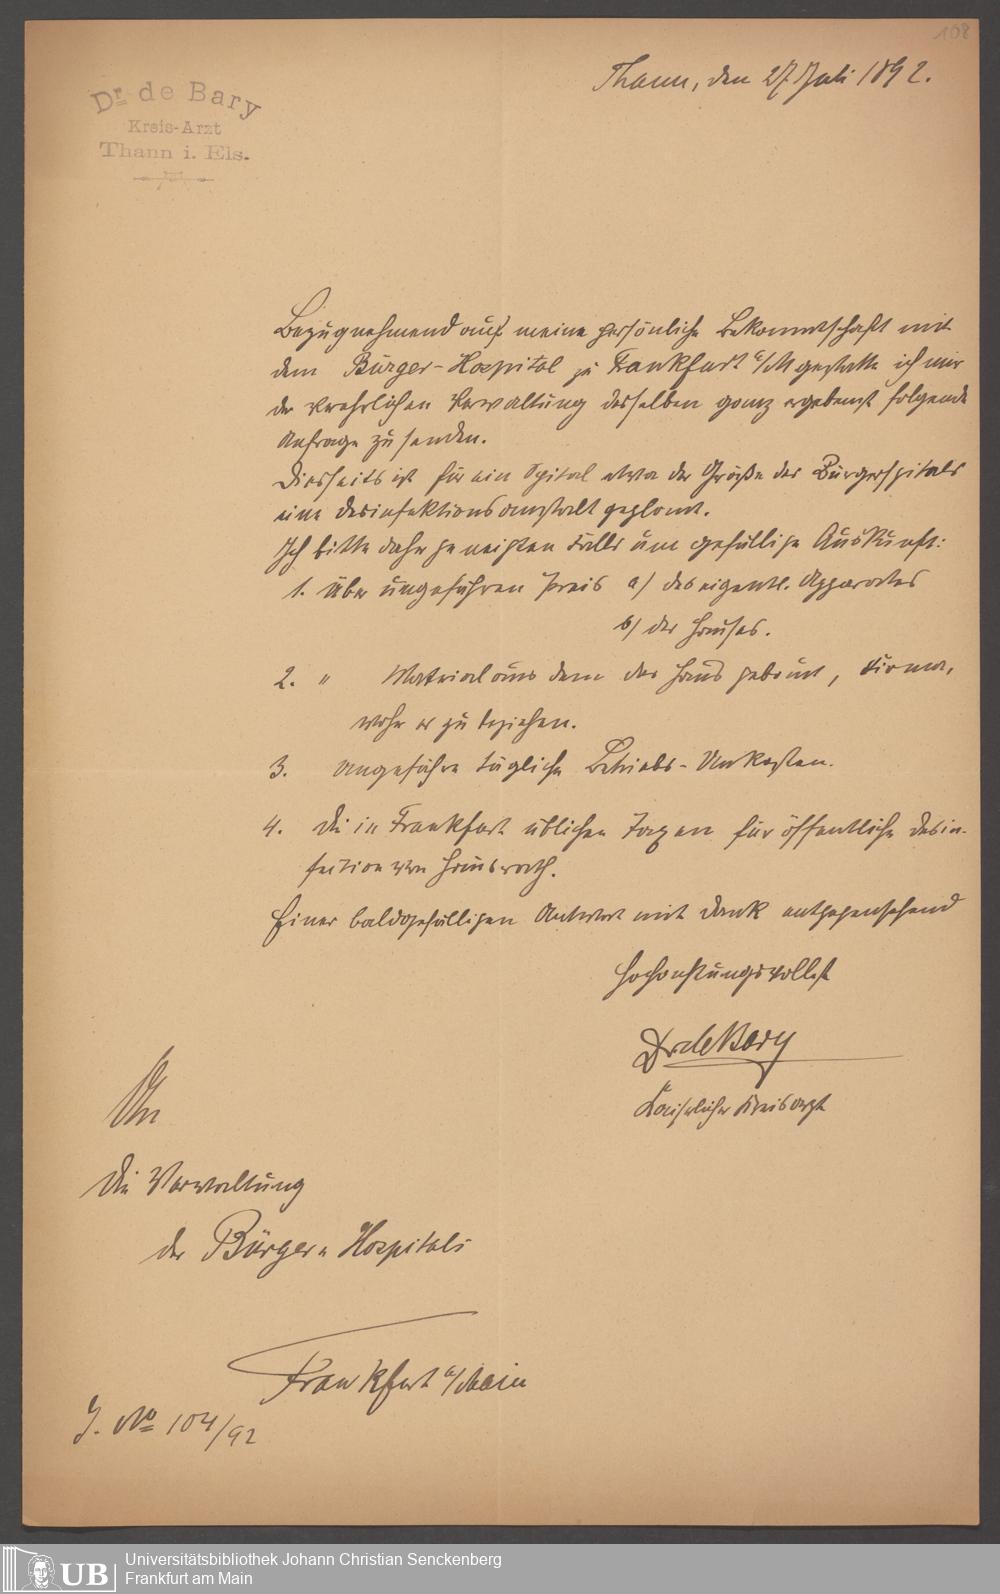 108
Thann, den 27 Juli 1892.
Dr. de Bary
Kreis-Arzt
Thann i. Els.
Bezugnehmend auf meine persönliche Bekanntschaft mit
dem Bürger-Hospital zu Frankfurt a/M gestatte ich mir
der verehrlichen Verwaltung desselben ganz ergebenst folgende
Anfrage zu senden.
Diesseits ist für ein Spital etwa der Größe des Bürgerspitals
eine Desinfektionsanstalt geplant.
Ich bitte daher geneigten Falls um gefällige Auskunft:
1. Über ungefähren Preis a) des eigentl. Apparates
b) des Hauses.
2. " Material aus dem das Haus gebaut, Firma,
woher er zu beziehen.
3. Ungefähre tägliche Betriebs-Unkosten.
4. Die in Frankfurt üblichen Taxen für öffentliche Desin-
fection von Hausrath.
Einer baldgefälligen Antwort mit Dank entgegensehend
Hochachtungsvollst
Dr de Bary
Kaiserlicher Kreisarzt
An
die Verwaltung
des Bürger-Hospitals
Frankfurt a/Main
J. No 104/92
Universitätsbibliothek Johann Christian Senckenberg
Frankfurt am Main
UB